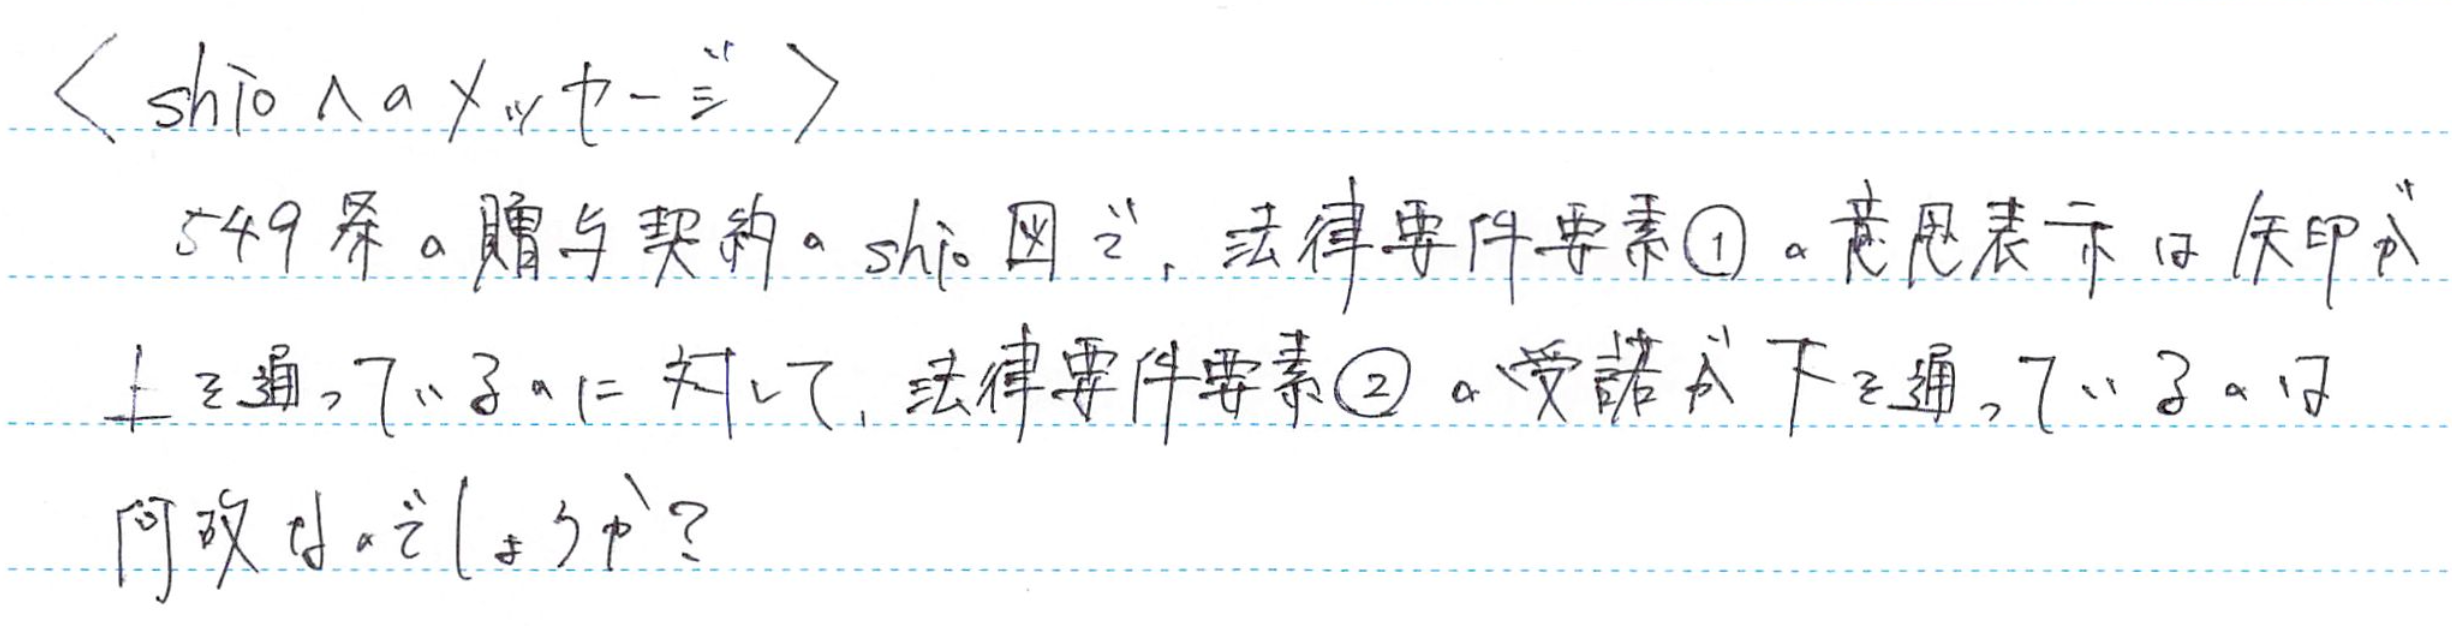 〈shioへのメッセージ〉
549条の贈与契約のshio図で、法律要件要素①の意思表示は矢印が
上を通っているのに対して、法律要件要素②の受諾が下を通っているのは
何故なのでしょうか?